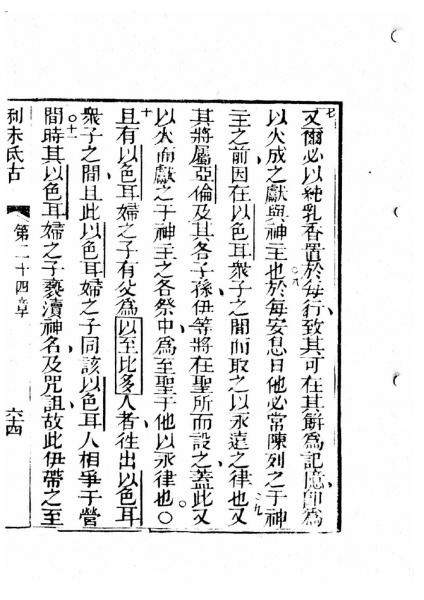 七又爾必以純乳香置於每行致其可在其餅為記憶卽為
以火成之獻與神主也○八於每安息日他必常陳列之于神
主之前因在以色耳衆子之間而取之以永遠之律也○九又
其將屬亞倫及其各子孫伊等將在聖所而設之蓋此又
以火而獻之于神主之各祭中為至聖于他以永律也○
十且有以色耳婦之子有父為以至比多人者徃出以色耳
衆子之間且此以色耳婦之子同該以色耳人相爭于營
間時○十一其以色耳婦之子褻瀆神名及咒詛故此伊帶之至
利未氏古
第二十四章
六十四